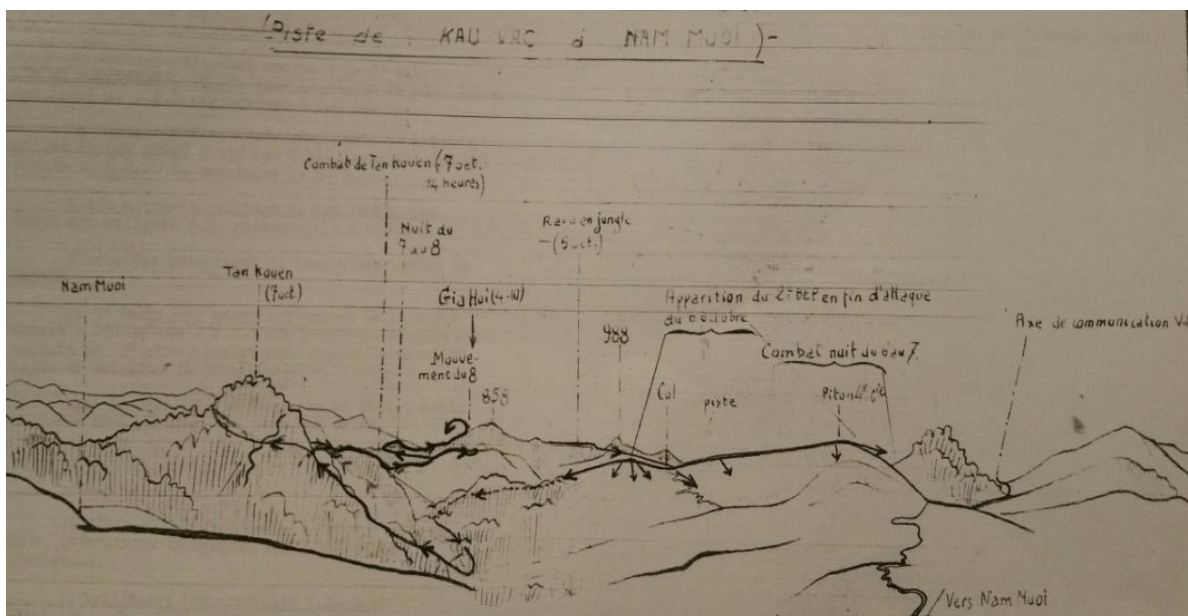 (Piste de KAU VAC à NAM MUOI)-
Combat de Tan Kouen (-7 oct.
14 heures)
Nuit du
7 au 8
Raid en jungle
-(5 oct.)
Tan Kouen
(7 oct)
Nam Muoi
Gia Hui (4-10)
Apparition du 2e BEP en fin d'attaque
du 6 octobre
988
Axe de communication
Combat nuit du 6 au 7.
Mouve-
ment du 8
858
Col
piste
Piton 4e Cie
Vers Nam Muoi